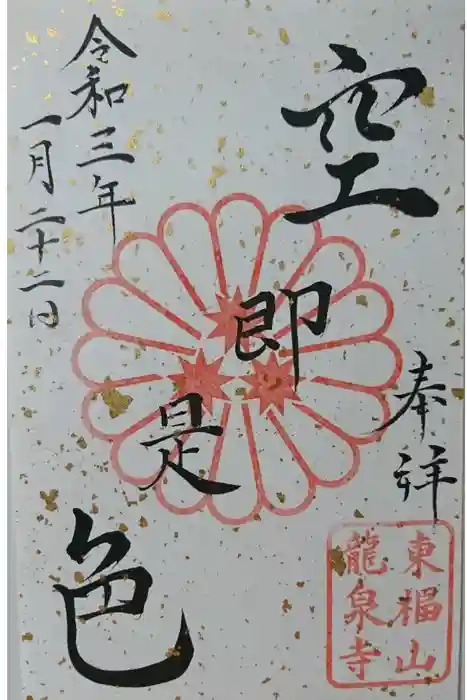 奉拝
空即是色
令和三年
一月二十二日
東楅山
龍泉寺